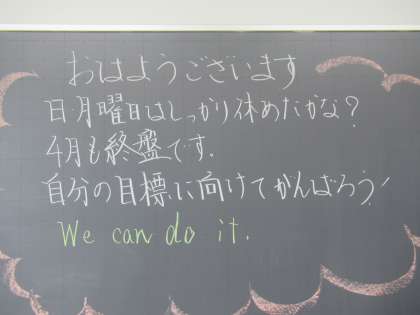 おはようございます
日・月曜日はしっかり休めたかな?
4月も終盤です.
自分の目標に向けてがんばろう!
We can do it.